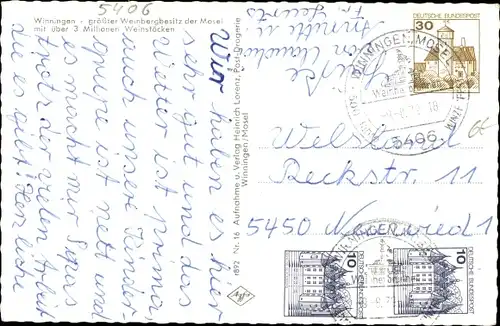 5406
Winningen - größter Weinbergbesitz der Mosel
mit über 3 Millionen Weinstöcken
Wir haben es hier
sehr gut und das
Wetter ist prima,
auch unsere Kinder-
gruppe ist nett und
es macht mir Spaß
trotz der vielen Arbeit
die es gibt! Herzliche
Grüße
Annette u.
1892 Nr. 16 Aufnahme u. Verlag Heinrich Lorenz, Post-Drogerie
Winningen/Mosel
Agfa
30
DEUTSCHE BUNDESPOST
WINNINGEN, MOSEL
5406
Beckstr. 11
5450 Neuwied 1
10
DEUTSCHE BUNDESPOST
10
DEUTSCHE BUNDESPOST